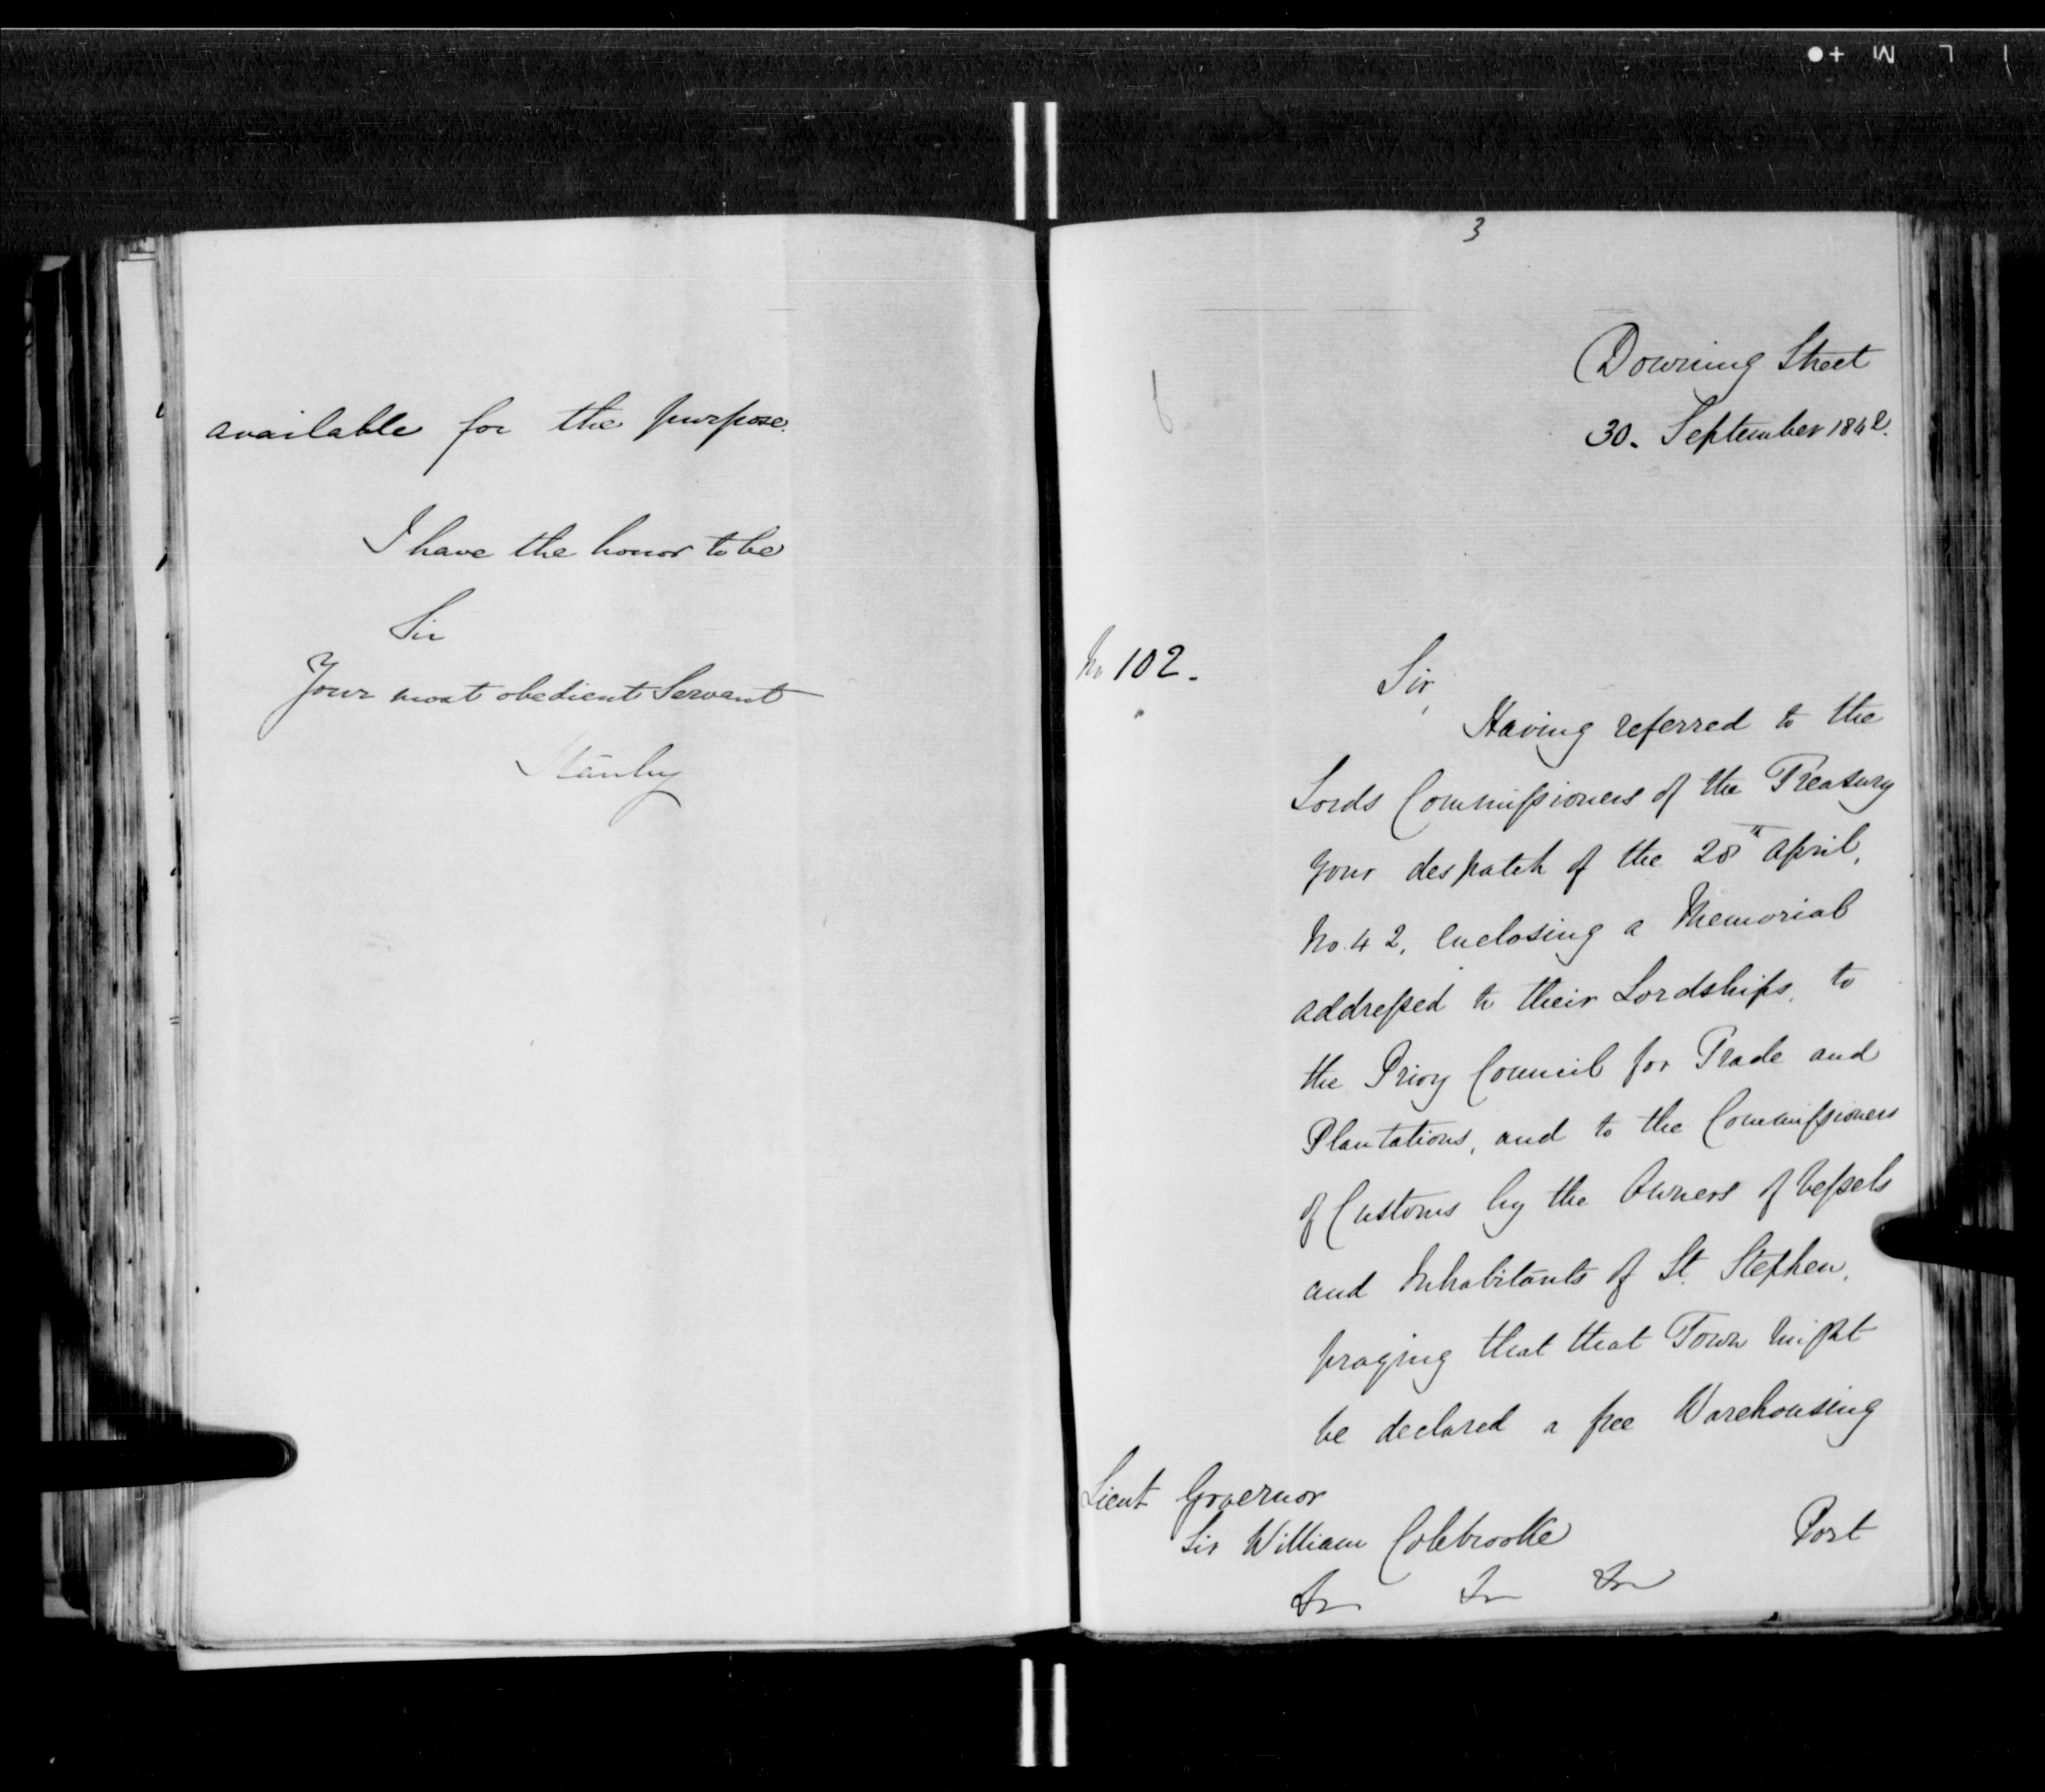 available for the purpose.
I have the honor to be
Sir
Your most obedient Servant
Stanley
3
Downing Street
30. September 1842.
No 102.
Sir,
Having referred to the
Lords Commissioners of the Treasury
your despatch of the 28th April,
No. 42, enclosing a Memorial
addressed to their Lordships, to
the Privy Council for Trade and
Plantations, and to the Commissioners
of Customs by the Owners of Vessels
and Inhabitants of St. Stephen,
praying that that Town might
be declared a free Warehousing
Port
Lieut Governor
Sir William Colebrooke
&c &c &c